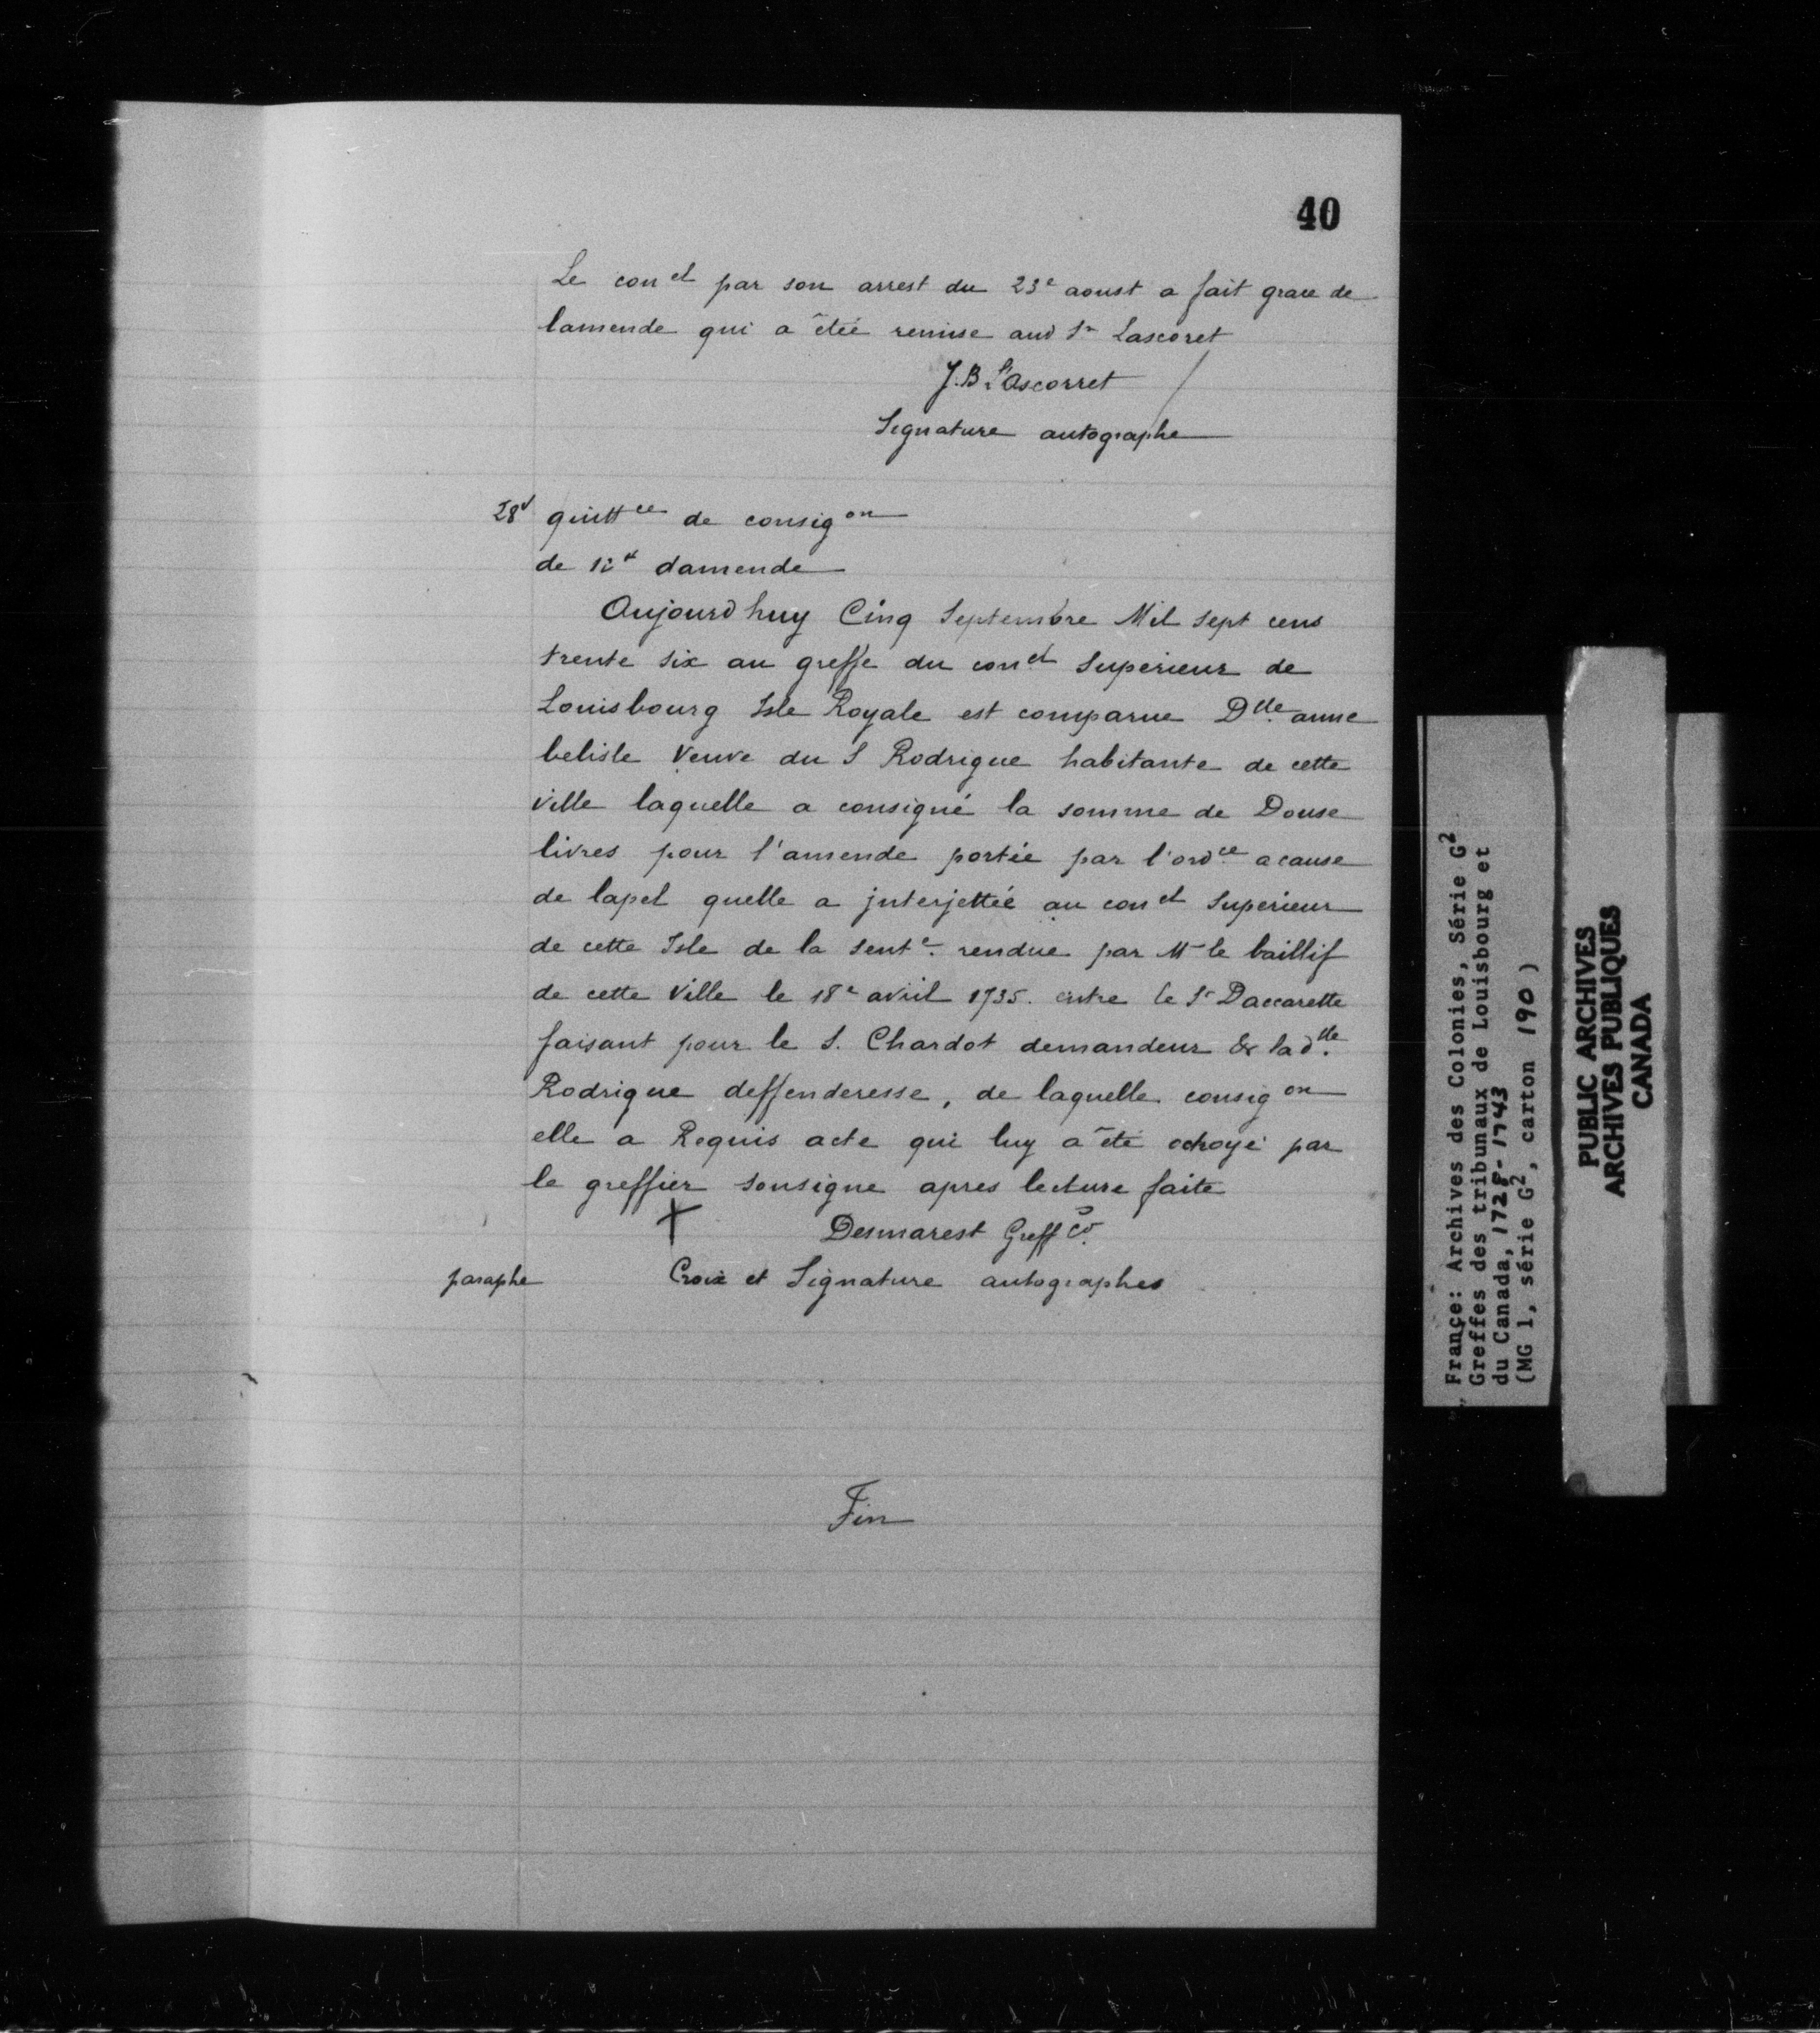 40
Le con^el par son arrest du 23^e aoust a fait grace de
lamende qui a été remise aud S^r Lascoret
J.B LAscorret
Signature autographe
28^d quitt^ce de consig^on
de 12^# damende
Aujourdhuy Cinq Septembre Mil sept cens
trente six au greffe du con^el Superieur de
Louisbourg Isle Royale est comparue D^lle anne
belisle Veuve du S Rodrigue habitante de cette
ville laquelle a consigné la somme de Douse
livres pour l'amende portée par l'ord^ce acause
de lapel quelle a jnterjettée au con^el Superieur
de cette Isle de la sent^e rendue par M^r le baillif
de cette Ville le 18^e avril 1735. entre le S^r Daccarette
faisant pour le S. Chardot demandeur & lad^lle
Rodrigue deffenderesse, de laquelle consig^on
elle a Requis acte qui luy a été octroyé par
le greffier sousigne apres lecture faite
X Desmarest Greff
paraphe Croix et Signature autographes
Fin
France: Archives des Colonies, Série G2
Greffes des tribunaux de Louisbourg et
du Canada, 1728-1743
(MG 1, série G2, carton 190)
PUBLIC ARCHIVES
ARCHIVES PUBLIQUES
CANADA